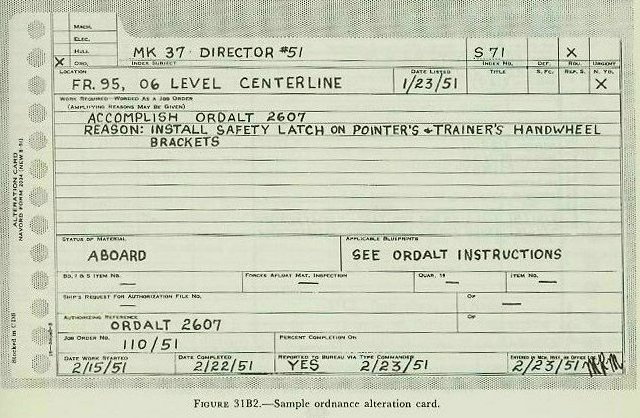 MACH.
ELEC.
HULL
X ORD.
MK 37 DIRECTOR #51
S 71
X
INDEX SUBJECT
INDEX NO.
DEF.
ROU.
URGENT
LOCATION
FR. 95, 06 LEVEL CENTERLINE
DATE LISTED
1/23/51
TITLE
S. FC.
REP. S.
N. YD.
X
WORK REQUIRED—WORDED AS A JOB ORDER
(AMPLIFYING REASONS MAY BE GIVEN)
ACCOMPLISH ORDALT 2607
REASON: INSTALL SAFETY LATCH ON POINTER'S & TRAINER'S HANDWHEEL
BRACKETS
STATUS OF MATERIAL
APPLICABLE BLUEPRINTS
ABOARD
SEE ORDALT INSTRUCTIONS
BD. I & S ITEM NO.
—
FORCES AFLOAT MAT. INSPECTION
—
QUAR.
—
ITEM NO.
—
SHIP'S REQUEST FOR AUTHORIZATION FILE NO.
—
OF
—
AUTHORIZING REFERENCE
OF
ORDALT 2607
JOB ORDER NO.
110/51
PERCENT COMPLETION ON
DATE WORK STARTED
2/15/51
DATE COMPLETED
2/22/51
REPORTED TO BUREAU VIA TYPE COMMANDER
YES 2/23/51
2/23/51
ALTERATION CARD
FIGURE 31B2.—Sample ordnance alteration card.